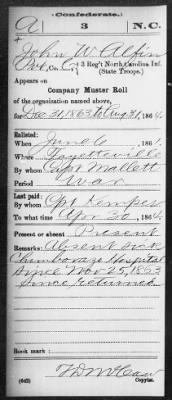 (Confederate.)
A 3 N.C.
John W Alpin
Pvt, Co. C, 3 Reg't North Carolina Inf.
(State Troops.)
Appears on
Company Muster Roll
of the organization named above,
for Dec 31, 1863 to Aug 31, 1864.
Enlisted:
When June 6, 1861.
Where Fayetteville
By whom Capt Mallett
Period War
Last paid:
By whom Cpt Kemper
To what time Apr 30, 1864.
Present or absent Present
Remarks: Absent sick
Chimborazo Hospital
since Nov 25, 1863
Since returned
Book mark:
(642) Copyist.